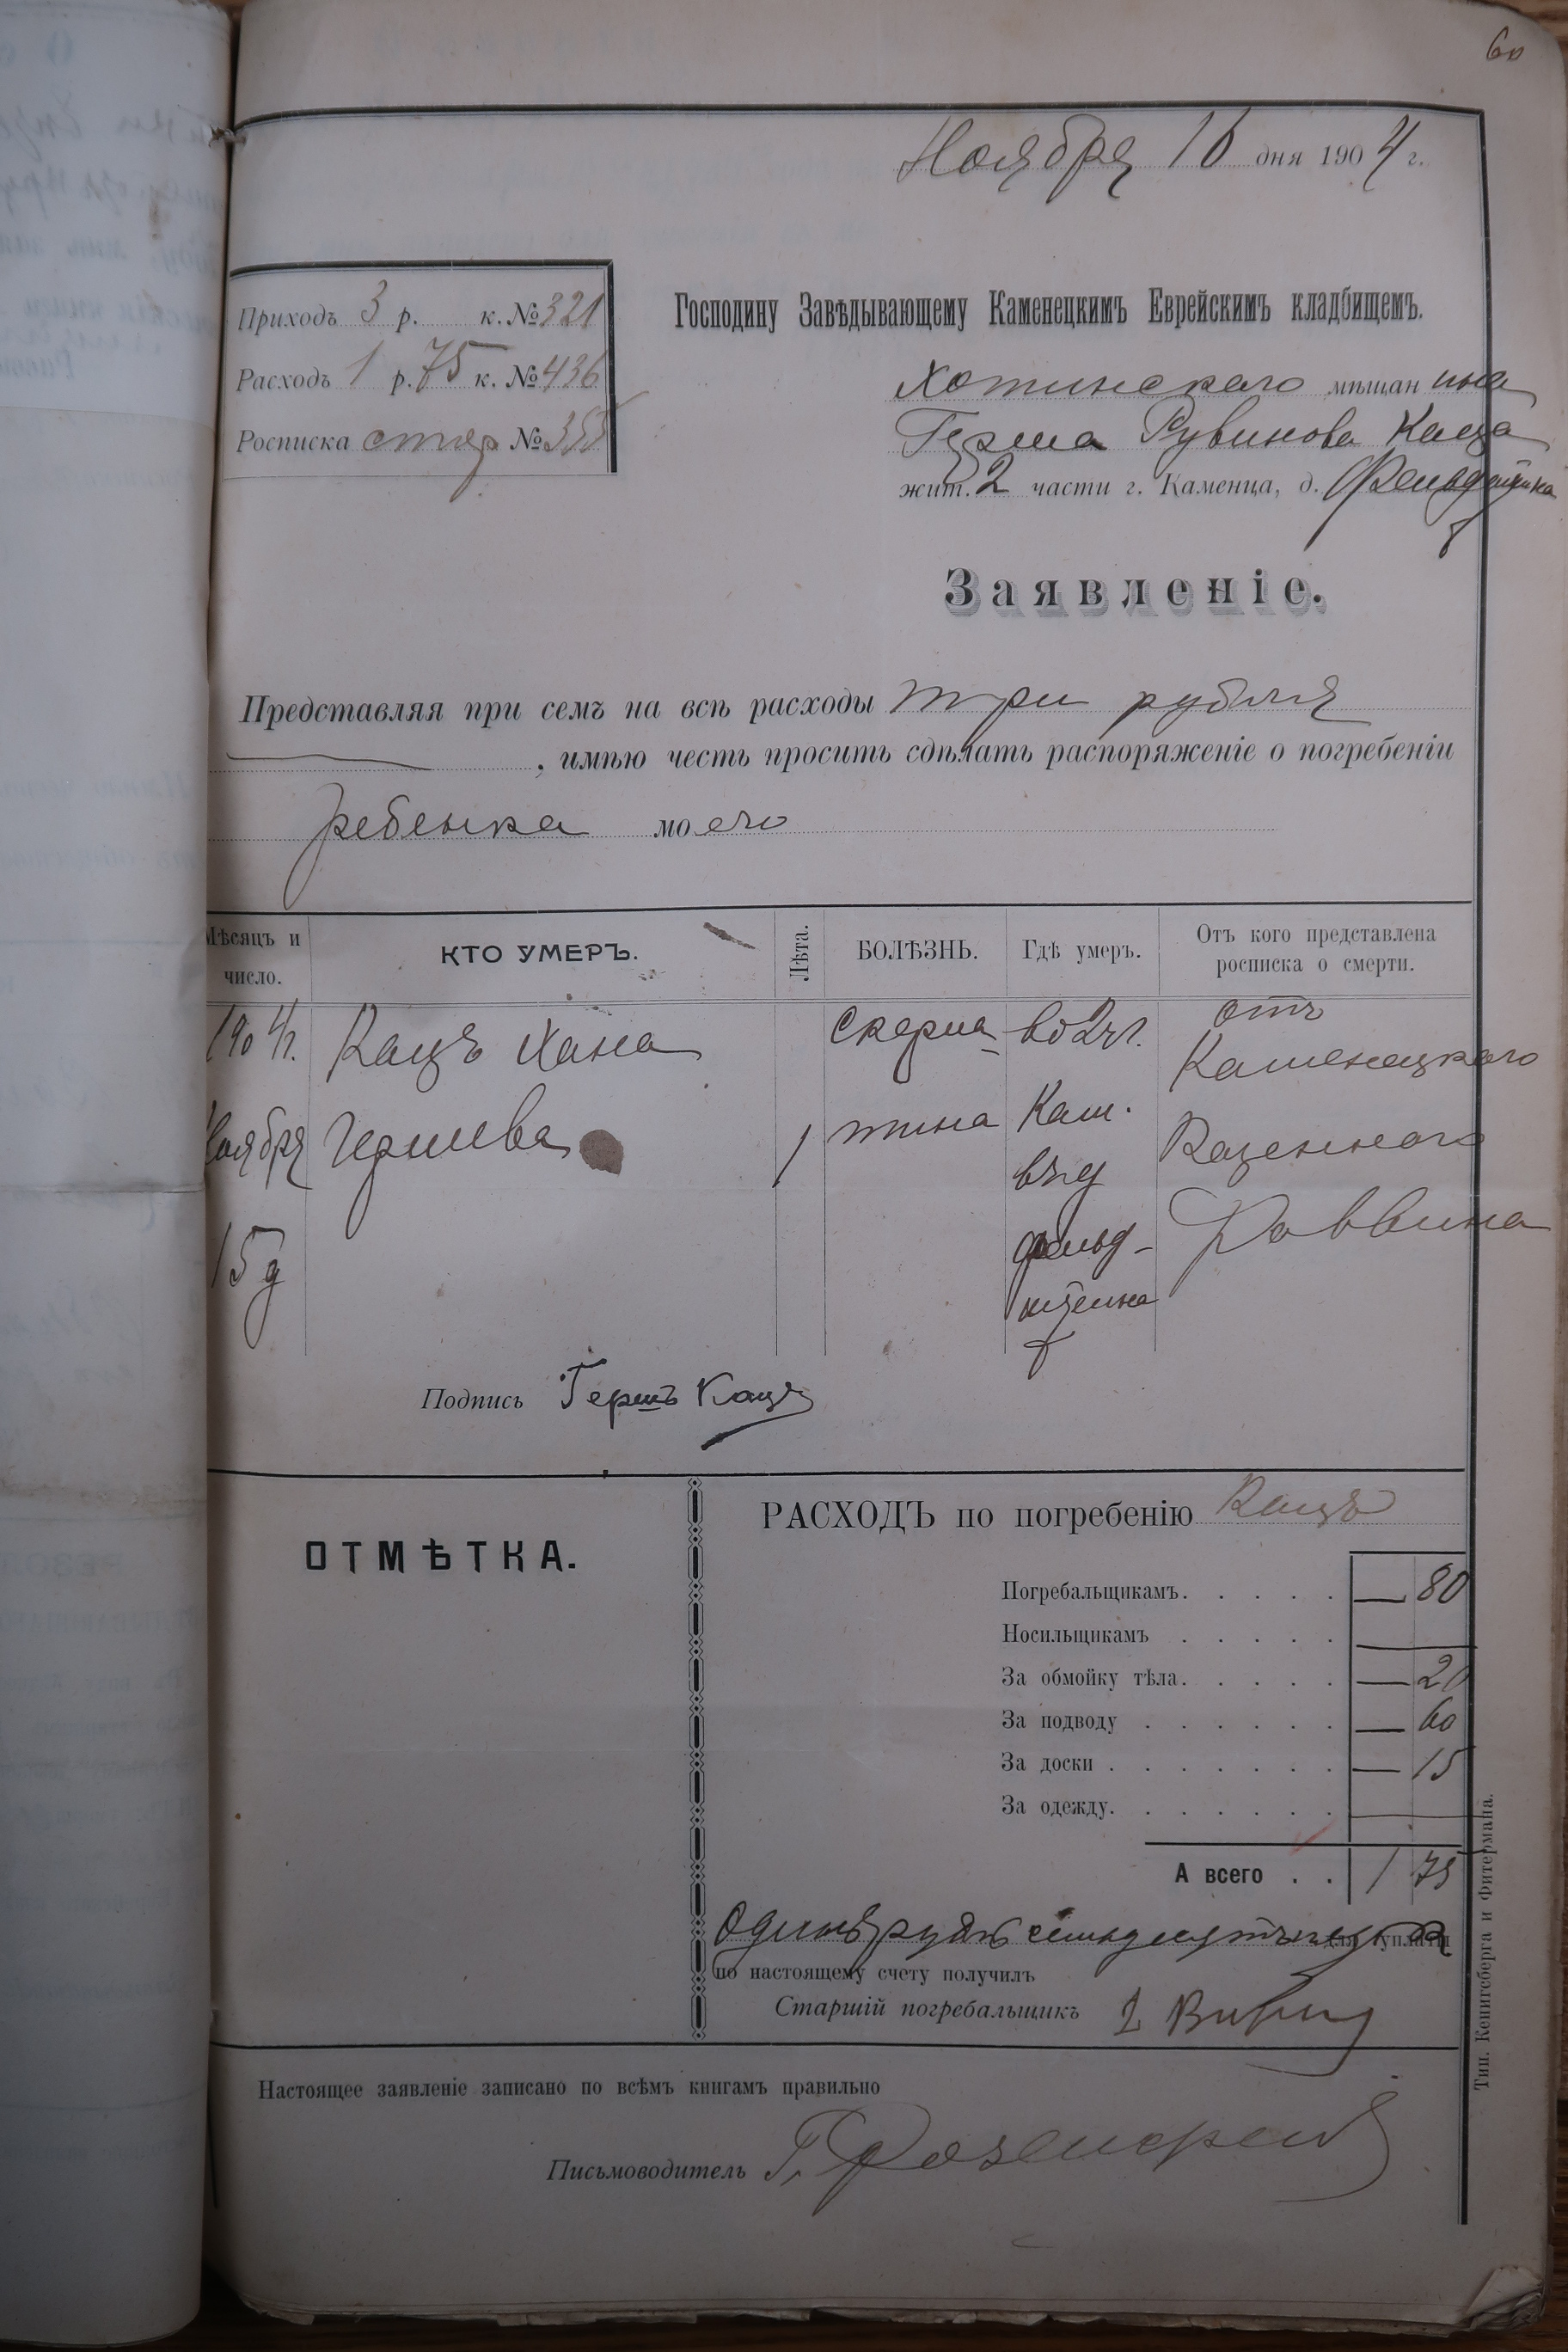 60
Ноября 16 дня 1904 г.
Приходъ 3 р. к. № 321
Расходъ 1 р. 75 к. № 436
Росписка № 355
Господину Завѣдывающему Каменецкимъ Еврейскимъ кладбищемъ.
Хотинскаго мѣщанина
Герша Рувинова Каца
жит. 2 части г. Каменца, д. Фельдштейна
Заявленіе.
Представляя при семъ на всѣ расходы три рубля
, имѣю честь просить сдѣлать распоряженіе о погребеніи
ребенка моего
Мѣсяцъ и число.
КТО УМЕРЪ.
Лѣта.
БОЛѢЗНЬ.
Гдѣ умеръ.
Отъ кого представлена росписка о смерти.
1904 г.
Ноября
15 д
Кацъ Хана
Гершева
1
Скарла-
тина
во 2 ч.
Кам.
въ д
Фельд-
штейна
отъ
Каменецкаго
Казеннаго
Раввина
Подпись Гершъ Кацъ
ОТМѢТКА.
РАСХОДЪ по погребенію Кацъ
Погребальщикамъ. — 80
Носильщикамъ —
За обмойку тѣла. — 20
За подводу — 60
За доски — 15
За одежду. —
А всего 1 75
Одинъ рубль семьдесятъ пять к для уплаты
по настоящему счету получилъ
Старшій погребальщикъ
Настоящее заявленіе записано по всѣмъ книгамъ правильно
Письмоводитель Г.
Тип. Кенигсберга и Фитермана.